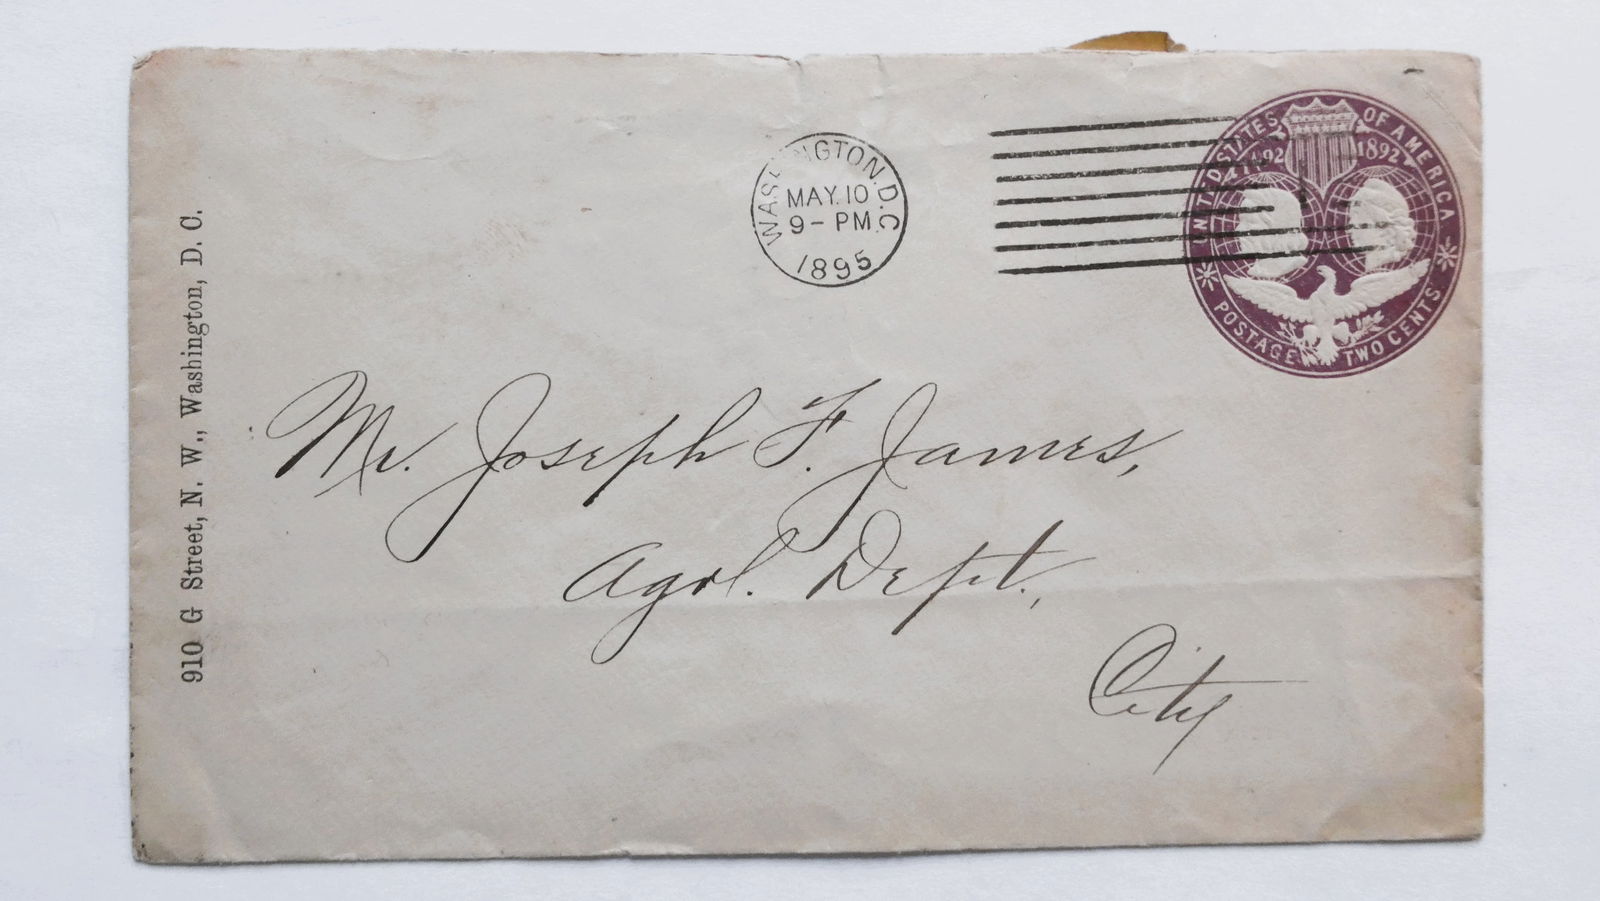 910 G Street, N. W., Washington, D. C.
WASHINGTON, D.C.
MAY. 10
9 – PM.
1895
UNITED STATES OF AMERICA
1492 1892
POSTAGE TWO CENTS
Mr. Joseph F. James,
Agrl. Dept.,
City